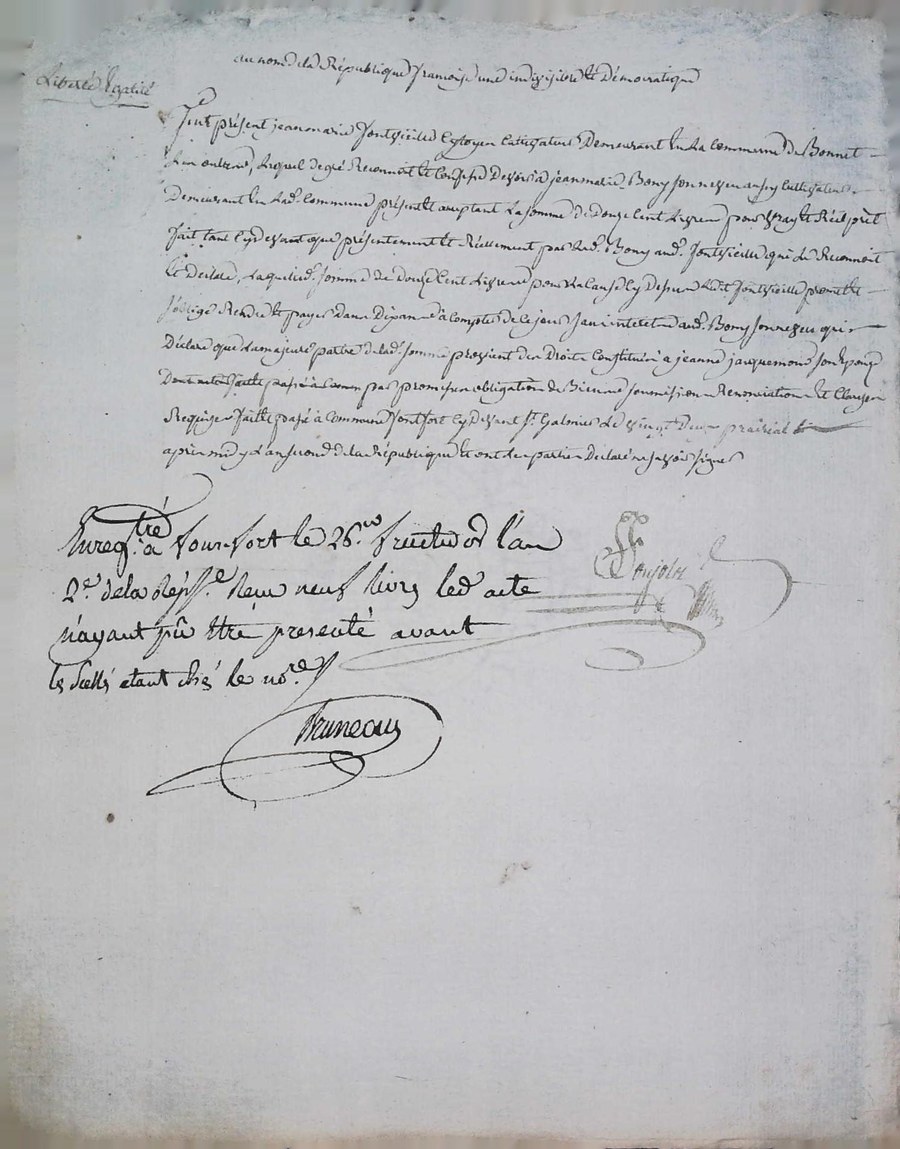 au nom de la République francoise une indivisible et démocratique
Liberté Egalité
fut présent jeanmarie fontvieille Cytoyen Cultivateur Demeurant En La Commune de Bonnet
Lequel de gré Reconnoit et Confesse Devoir a jeanmarie Bony son neveu aussy Cultivateur
Demeurant En Lad. Commune présent et acceptant La somme de Douze Cent Livres pour vray et Réel prêt
fait tant Cy devant que présentement et Réellement par Led. Bony aud. fontvieille qui Le Reconnoit
Et Declare, Laquelle d. somme de Douze Cent Livres pour La Cause Cy Dessus Led. fontvieille promet Et
s'oblige Rendre Et payer Dans Dix années a Compter de Ce jour sans interet aud. Bony son neveu qui
Déclare que La majeure partie de lad. somme provient des Droits Constitués a jeanne jacquemond son Epouse
Dont acte par promesses obligation de Biens soumission Renonciation Et Clauses
Requises fait Et passé à Commune fontfort Cy devant St. Galmier Le vingt Deux prairial
après midy L'an second de la République Et ont Les parties Déclaré ne savoir signer
Enregtré. à fontfort le 26.e fructidor l'an
2.e de la Rép.e Reçu neuf livres led. acte
n'ayant pû Etre presenté avant
les scellés etant chés le no.re
Pujolas
Bruneau